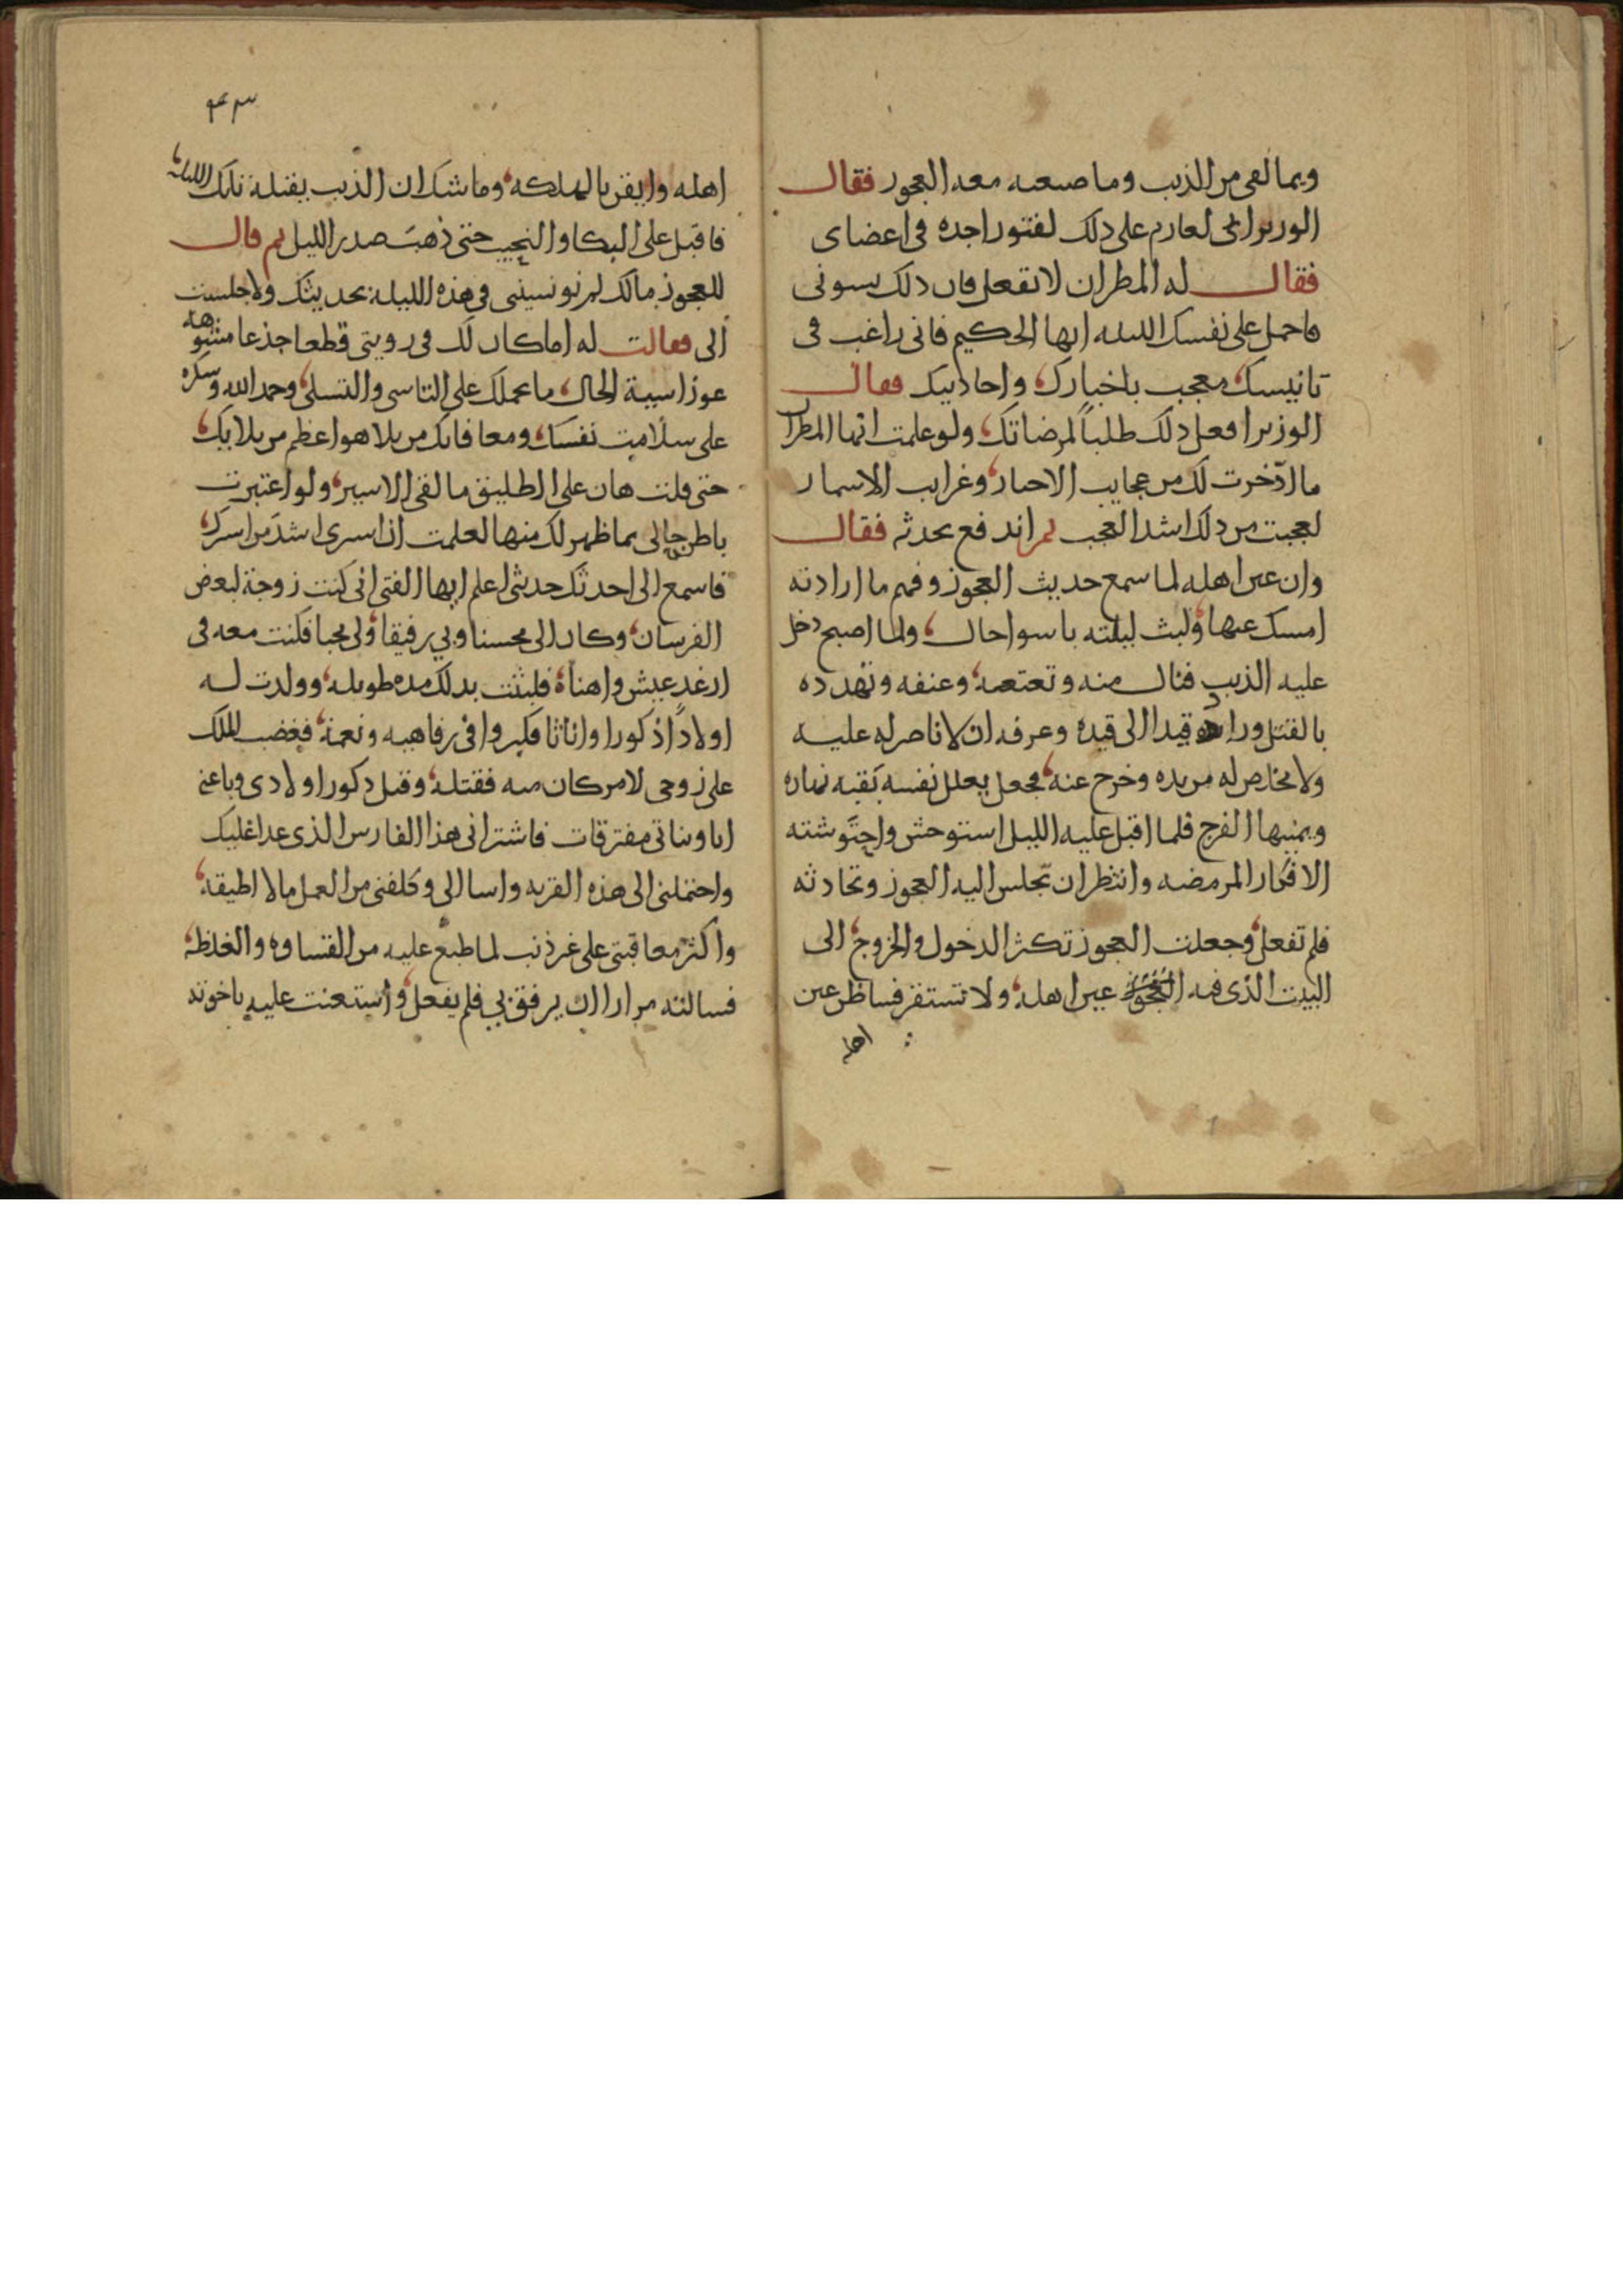 وبما لقى من الذيب وما صنعه معه العجوز فقال
الوزير انى لعازم على ذلك لفتور اجده فى اعضاى
فقال له المطران لا تفعل فان ذلك يسونى
فاحمل على نفسك الليله ايها الحكيم فانى راغب فى
تانيسك معجب باخبارك واحاديثك فقال
الوزير افعل ذلك طلباً لمرضاتك ولو علمت ايها المطران
ما ادّخرت لك من عجايب الاخبار وغرايب الاسمار
لعجبت من ذلك اشد العجب ثم اندفع يحدثه فقال
وان عين اهله لما سمع حديث العجوز وفهم ما ارادته
امسك عنها ولبث ليلته باسوا حال ولما اصبح دخل
عليه الذيب فنال منه وتعتعه وعنفه وتهدده
بالقتل وزاده قيدا الى قيده وعرفه ان لا ناصر له عليه
ولا مخلص له من يده وخرج عنه فجعل يعلل نفسه بقيه نهاره
ويمنيها الفرج فلما اقبل عليه الليل استوحش واحتوشته
الافكار الممرضه وانتظر ان تجلس اليه العجوز وتحادثه
فلم تفعل وجعلت العجوز تكثر الدخول والخروج الى
البيت الذى فيه العجوز عين اهله ولا تستقر فسا ظن عين
اهله
٤٣
اهله وايقن بالهلكه وما شك ان الذيب يقتله تلك الليله
فاقبل على البكا والنحيب حتى ذهب صدر الليل ثم قال
للعجوز مالك لم تونسينى فى هذه الليله بحديثك ولا جلست
الى فقالت له اما كان لك فى رويتى قطعا جذعا مشوهه
عوزا سيية الحال ما يحملك على التاسى والتسلى وحمد الله وشكره
على سلامت نفسك ومعافاتك من بلا هو اعظم من بلايك
حتى قلت هان على الطليق ما لقى الاسير ولو اعتبرت
باطن حالى بما ظهر لك منها لعلمت ان اسرى اشد من اسرك
فاسمع الى احدثك حديثى اعلم ايها الفتى انى كنت زوجة لبعض
الفرسان وكان الى محسنا وبى رفيقا ولى محبا فكنت معه فى
ارغد عيش واهناه فلبثت بذلك مده طويله وولدت له
اولاداً ذكورا واناثا فكبروا فى رفاهيه ونعمة فغضب الملك
على زوجى لامر كان منه فقتله وقتل ذكور اولادى وباعنى
انا وبناتى مفترقات فاشترانى هذا الفارس الذى عدا عليك
واحتملنى الى هذه القريه واسا الى وكلفنى من العمل ما لا اطيقه
واكثر معاقبتى على غير ذنب لما طبع عليه من القساوه والغلظه
فسالته مرارا ان يرفق بى فلم يفعل واستعنت عليه باخوته